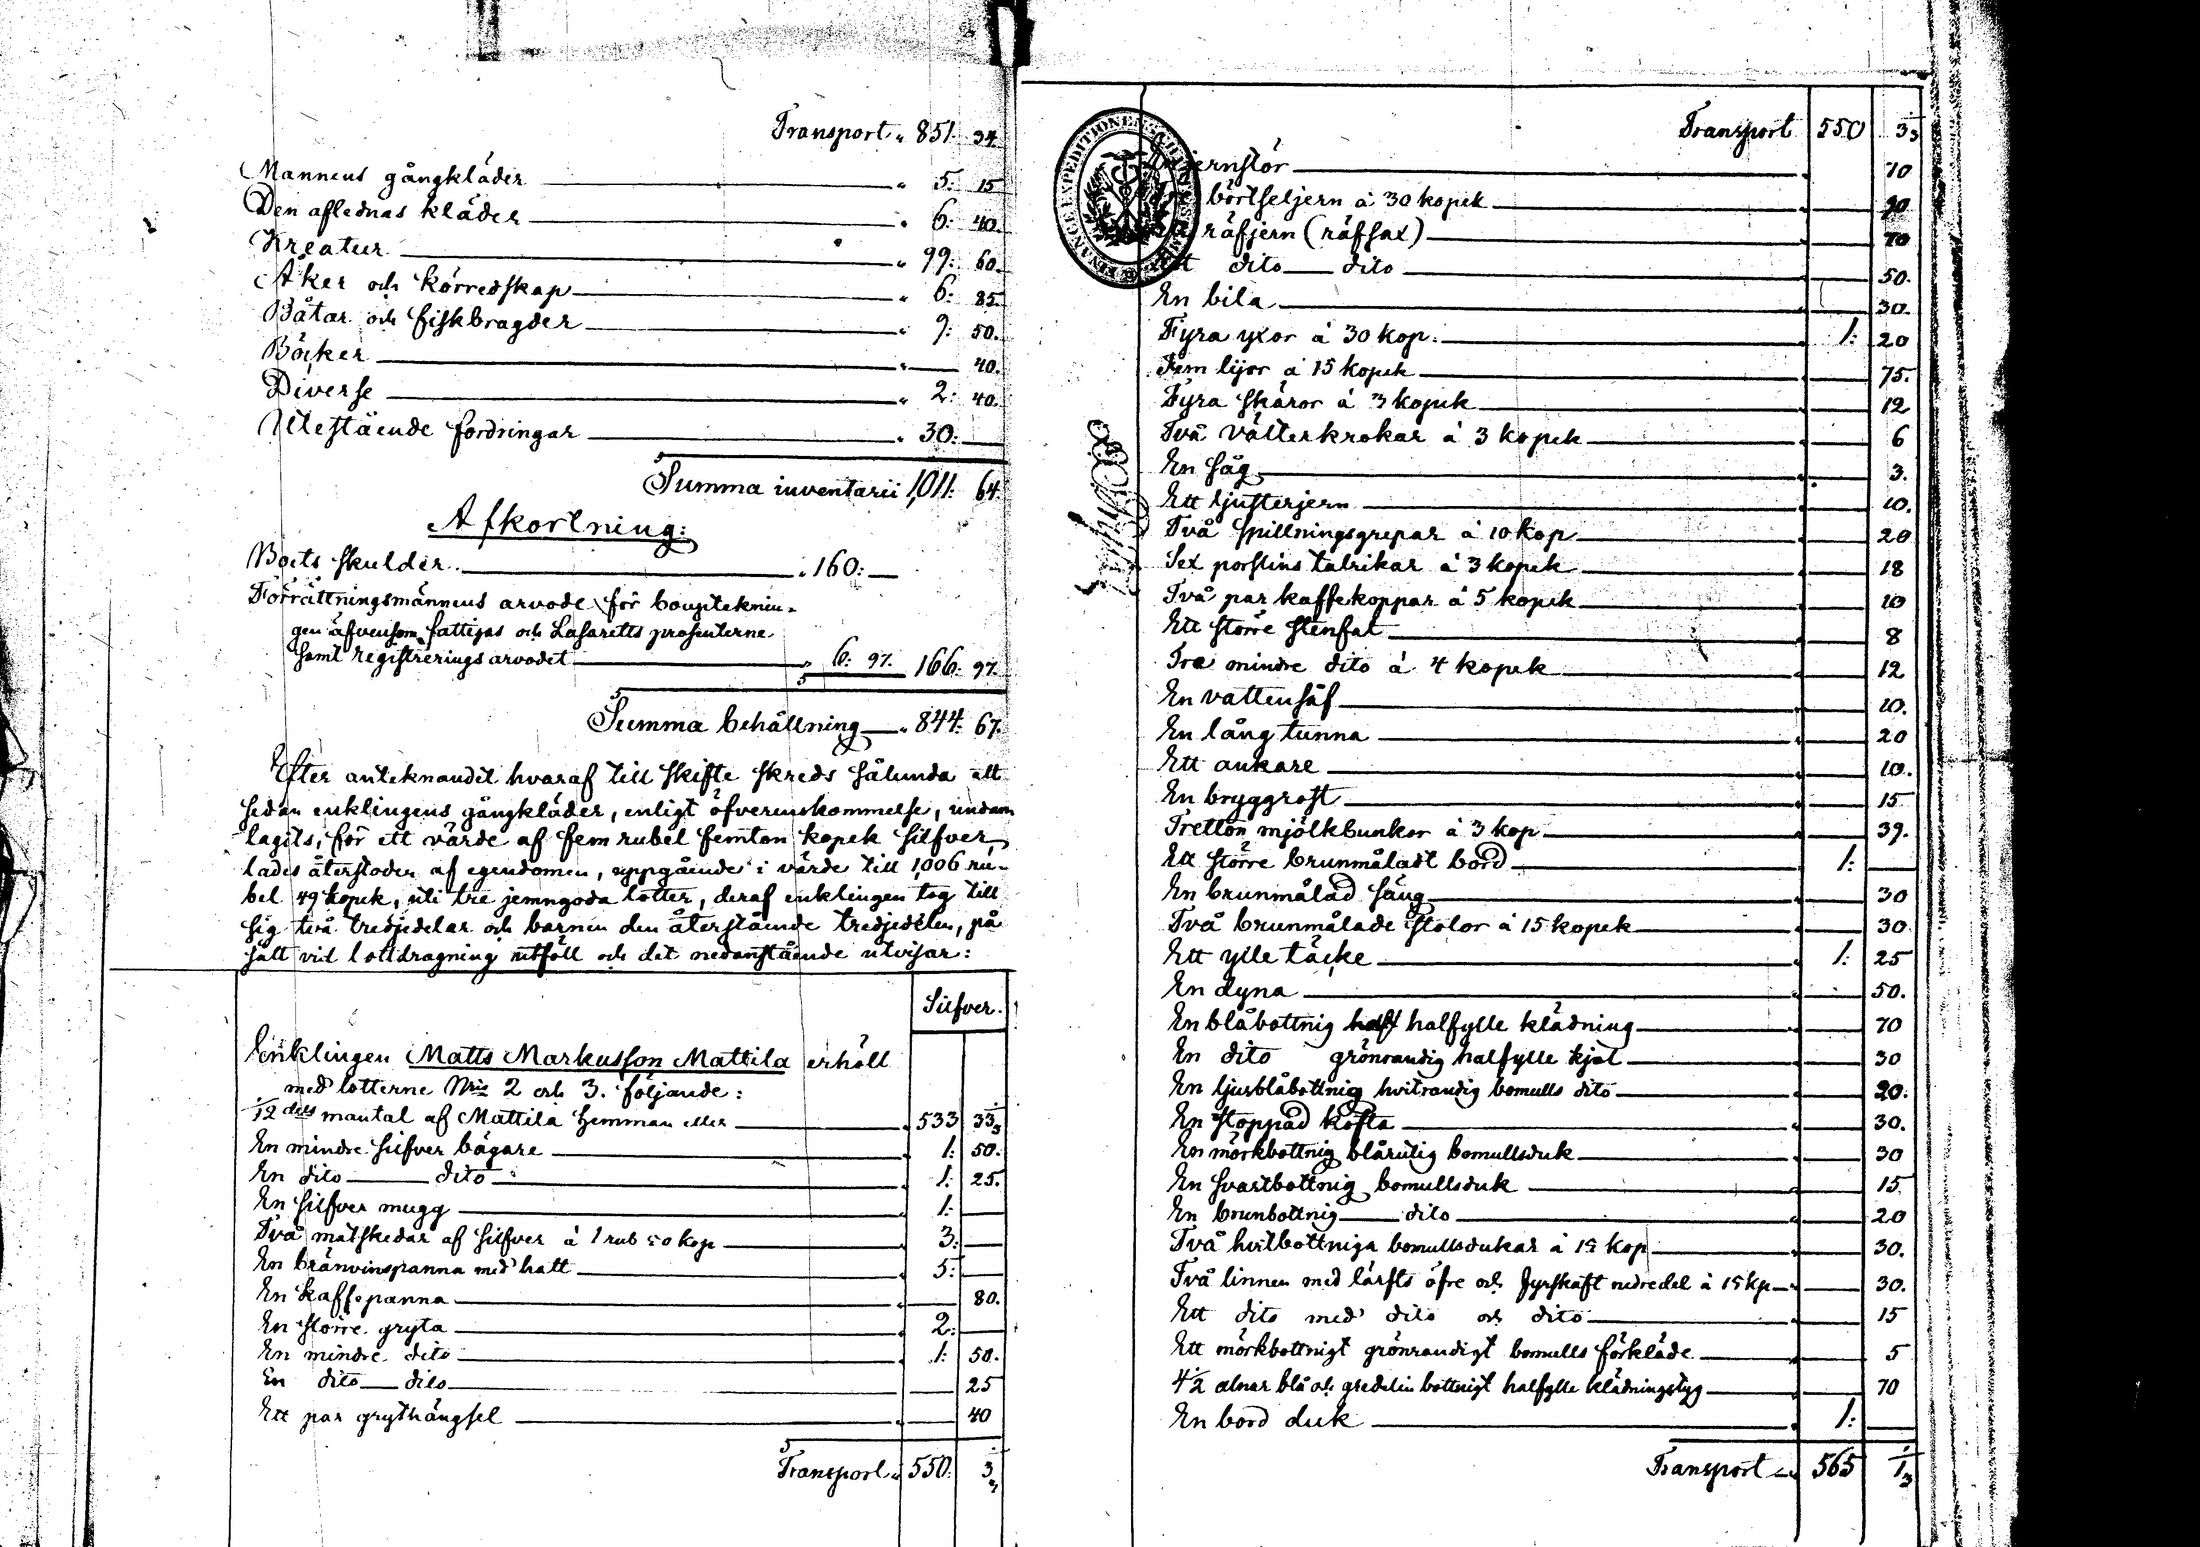 Transport „ 851: 34.
Mannens gångkläder „ 5: 15
Den aflednas kläder „ 6: 40.
Kreatur „ 99: 60.
Åker och körredskap „ 6: 85.
Båtar och fiskbragder „ 9: 50.
Böcker „ 40.
Diverse „ 2: 40.
Utestående fordringar „ 30:
Summa inventarii 1,011: 64.
Afkortning:
Boets skulder „ 160:
Förrättningsmännens arvode för boupteknin-
gen äfvensom fattigas och Lasaretts prosenterne
samt registreringsarvodet „ 6: 97. 166: 97.
Summa behållning „ 844: 67.
Efter anteknandet hvaraf till skifte skreds sålunda att
sedan enklingens gångkläder, enligt öfverenskommelse, undan
lagits, för ett värde af fem rubel femton kopek silfver,
lades återstoden af egendomen, uppgående i värde till 1,006 ru-
bel 49 kopek, uti tre jemngoda lotter, deraf enklingen tog till
sig två tredjedelar och barnen den återstående tredjedelen, på
sätt vid lottdragning utföll och det nedanstående utvisar:
Silfver.
Enklingen Matts Markusson Mattila erhöll
med lotterne Nris 2 och 3. följande:
1/12 dels mantal af Mattila hemman eller „ 533 33 1/3
En mindre silfver bägare 1: 50.
En dito dito 1: 25.
En silfver mugg 1:
Två matskedar af silfver à 1 rub 50 kop 3:
En bränvinspanna med hatt 5:
En kaffepanna 80.
En större gryta 2:
En mindre dito 1: 50.
En dito dito 25
Ett par grythängsel 40
Transport „ 550: 3
FINANCE EXPEDITIONENS
Transport 550 3
jernstör 70
börtseljern à 30 kopek 90
räfjern (räfsax) 70
Ett dito dito 50.
En bila 30.
Fyra yxor à 30 kop. 1: 20
Fem lijor à 15 kopek 75.
Fyra skäror à 3 kopek 12
Två välterkrokar à 3 kopek 6
En såg 3.
Ett ljusterjern 10.
Två spillningsgrepar à 10 kop 20
Sex porslins talrikar à 3 kopek 18
Två par kaffekoppar à 5 kopek 10
Ett större stenfat 8
Tre mindre dito à 4 kopek 12
En vattenså 10.
En lång tunna 20
Ett ankare 10.
En bryggrost 15
Tretton mjölkbunkor à 3 kop 39.
Ett större brunmåladt bord 1:
En brunmålad säng 30
Två brunmålade stolar à 15 kopek 30
Ett ylle täcke 1: 25
En dyna 50.
En blåbottnig halfylle klädning 70
En dito grönrandig halfylle kjol 30
En ljusblåbottnig hvitrandig bomulls dito 20.
En stoppad kofta 30.
En mörkbottnig blårutig bomullsduk 30
En svartbottnig bomullsduk 15
En brunbottnig dito 20
Två hvitbottniga bomullsdukar à 15 kop 30.
Två linnen med lärfts öfre och fyrskaft nedredel à 15 kp 30.
Ett dito med dito och dito 15
Ett mörkbottnigt grönrandigt bomulls förkläde 5
4 1/2 alnar blå och gredelin bottnigt halfylle klädningstyg 70
En bord duk 1:
Transport 565 1/3